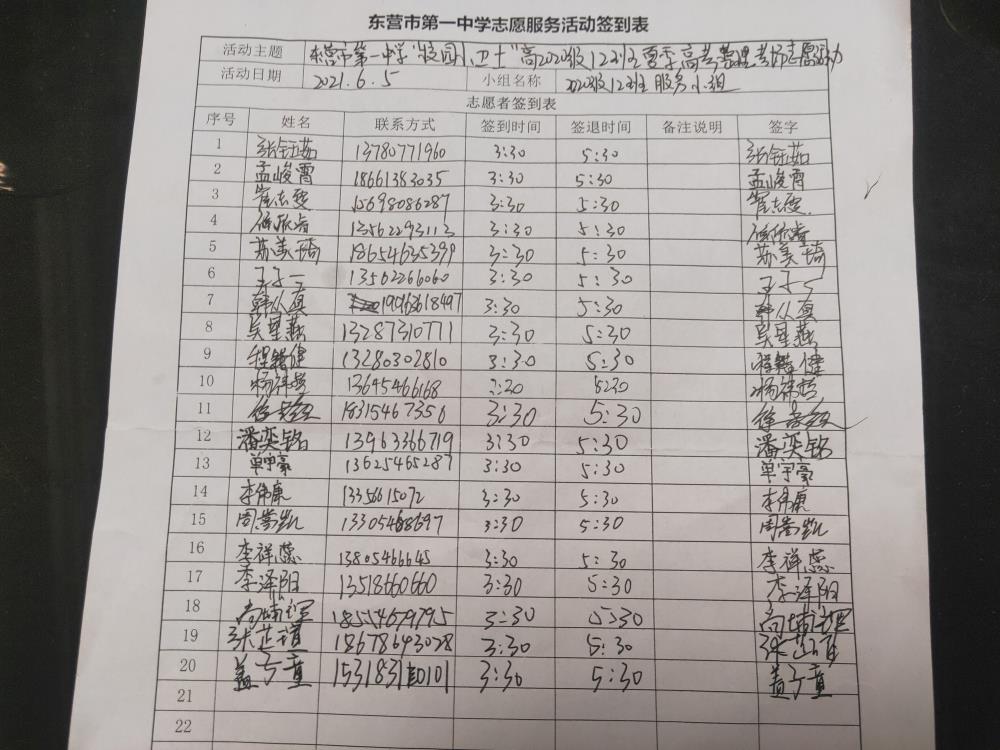 东营市第一中学志愿服务活动签到表
活动主题 东营市第一中学"校园小卫士"高2020级12班夏季高考整理考场志愿活动
活动日期 2021.6.5 小组名称 2020级12班服务小组
志愿者签到表
序号 姓名 联系方式 签到时间 签退时间 备注说明 签字
1 张钰茹 13780771960 3:30 5:30 张钰茹
2 孟峻霄 18661383035 3:30 5:30 孟峻霄
3 崔志雯 15698086287 3:30 5:30 崔志雯
4 13562293113 3:30 5:30
5 苏美琦 18654635399 3:30 5:30 苏美琦
6 13562266060 3:30 5:30
7 韩从真 3:30 5:30 韩从真
8 吴星燕 13287310771 3:30 5:30 吴星燕
9 程锴健 13280302810 3:30 5:30 程锴健
10 13645466168 5:30
11 18315467356 3:30 5:30
12 潘奕铭 13963366719 3:30 5:30 潘奕铭
13 单宇豪 13625465287 3:30 5:30 单宇豪
14 李伟康 3:30 5:30 李伟康
15 周嵩凯 3:30 5:30 周嵩凯
16 李祥蕊 13805466645 3:30 5:30 李祥蕊
17 李泽阳 13518660660 3:30 5:30 李泽阳
18 3:30 5:30
19 张芷瑄 18678693028 3:30 5:30
20 盖子童 3:30 5:30 盖子童
21
22